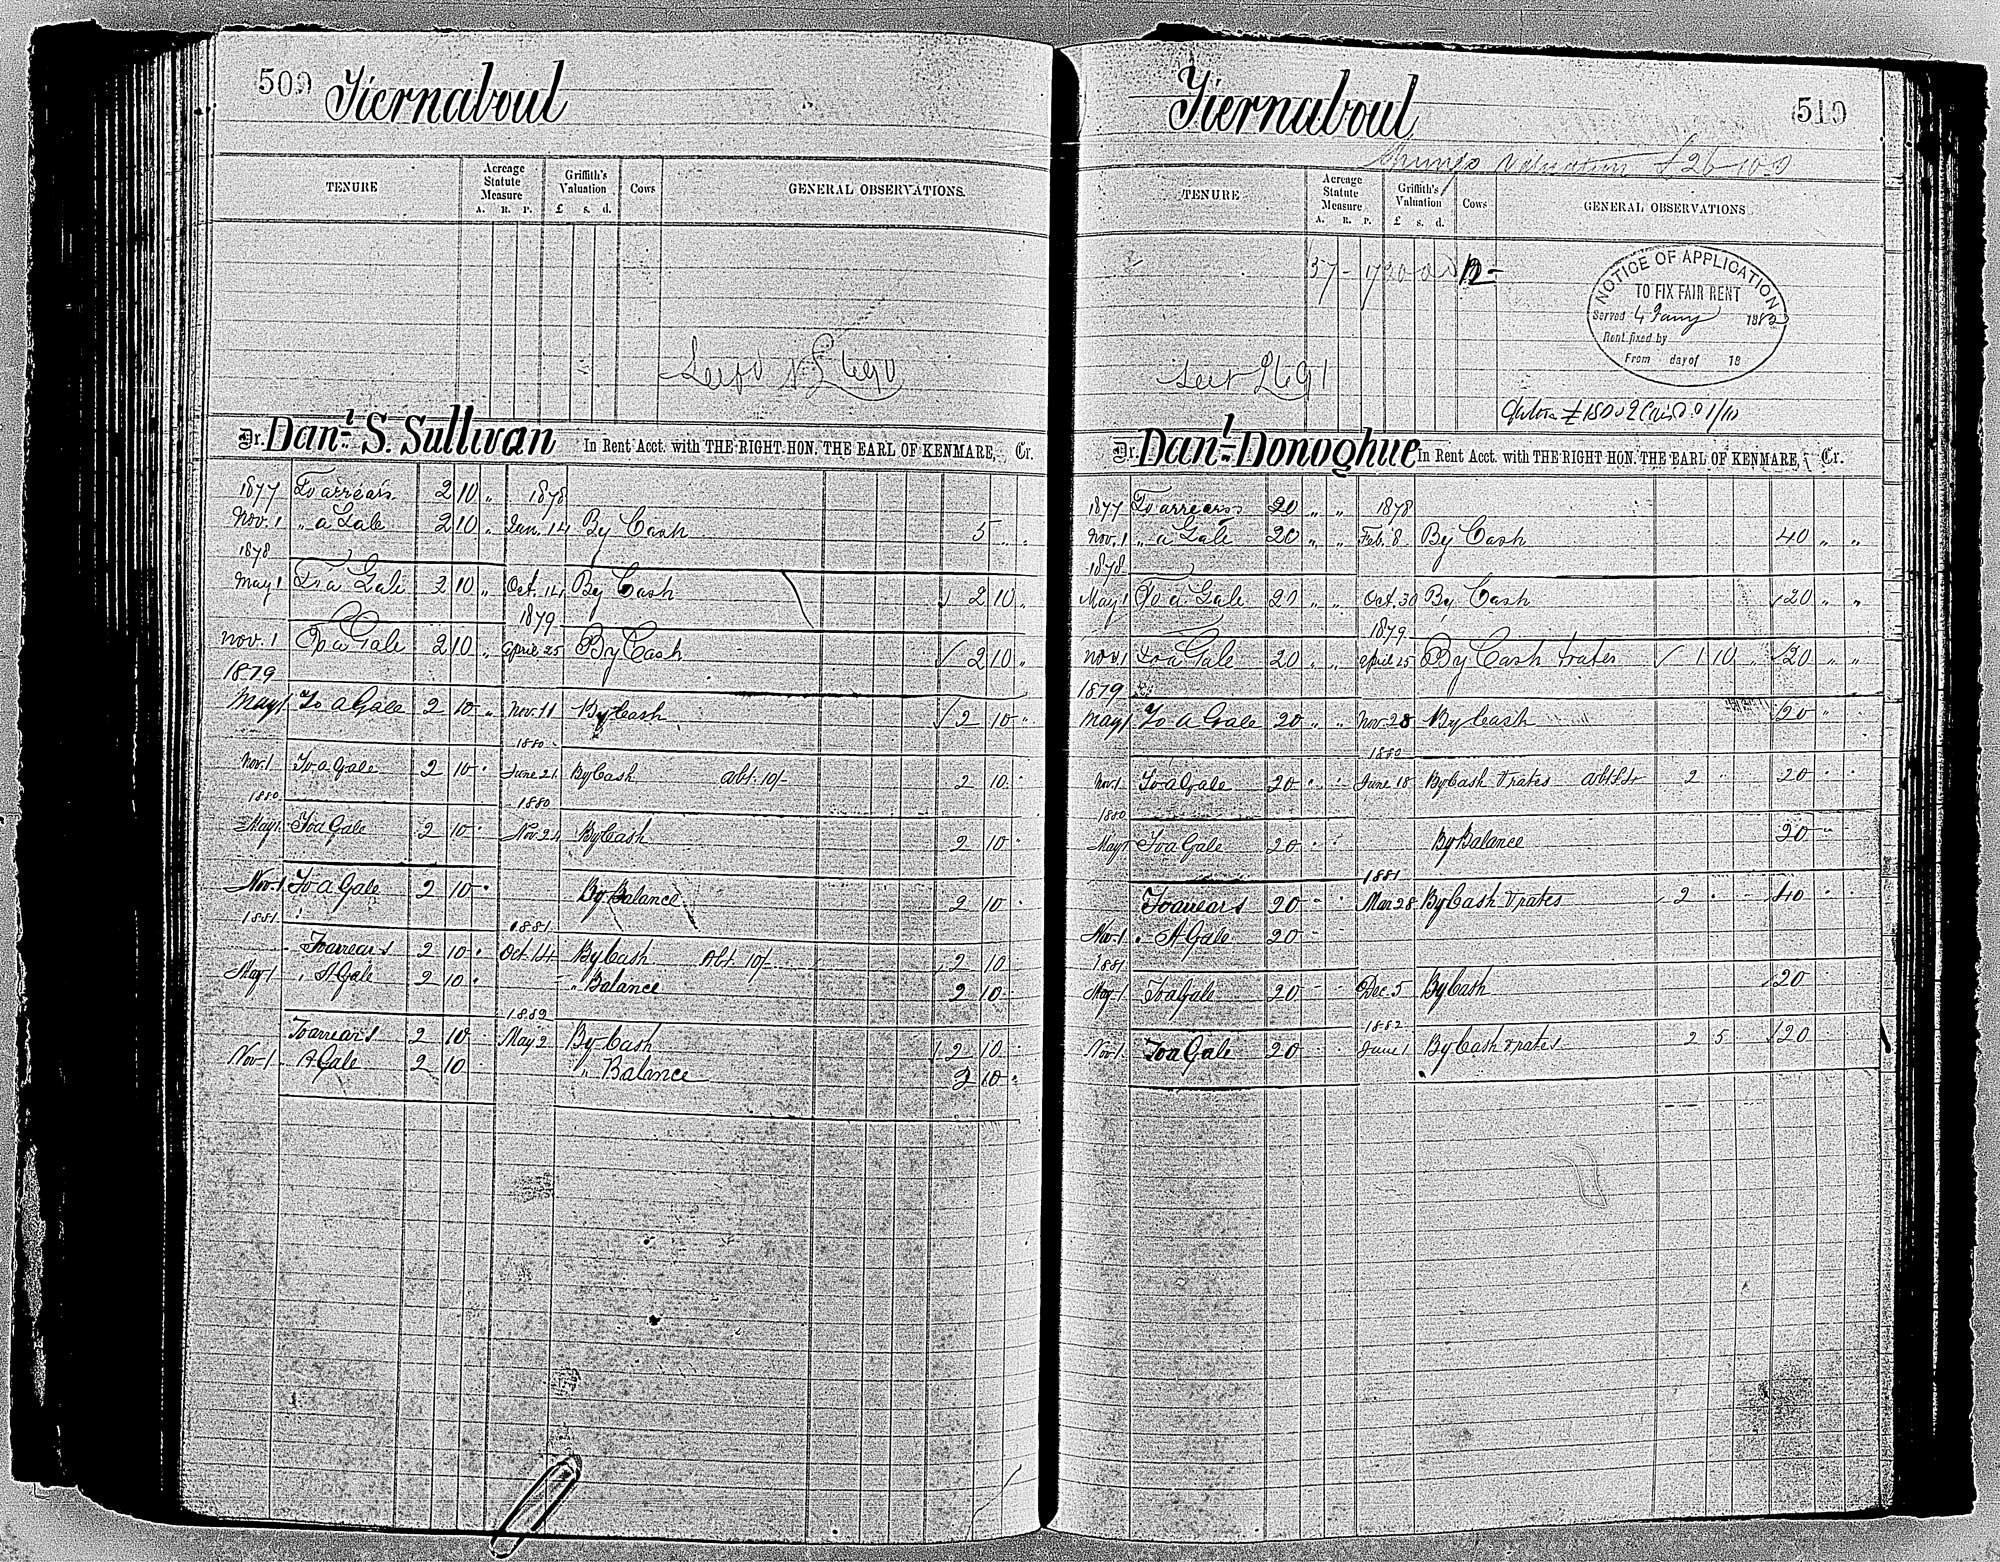 509
Tiernaboul
TENURE
Acreage Statute Measure
A. R. P.
Griffith's Valuation
£ s. d.
Cows
GENERAL OBSERVATIONS.
Dr. Danl. S. Sullivan In Rent Acct. with THE RIGHT HON. THE EARL OF KENMARE, Cr.
1877 To arrears 2 10 " 1878
Nov. 1 " a Gale 2 10 " Jan. 14 By Cash 5 " "
1878
May 1 To a Gale 2 10 " Oct. 14 By Cash 2 10 "
1879
Nov. 1 To a Gale 2 10 " April 25 By Cash 2 10 "
1879
May 1 To a Gale 2 10 " Nov. 11 By Cash 2 10 "
1880
Nov. 1 To a Gale 2 10 " June 21 By Cash Abt. 10/- 2 10 "
1880 1880
May 1 To a Gale 2 10 " Nov. 24 By Cash 2 10 "
Nov. 1 To a Gale 2 10 " By Balance 2 10 "
1881 1881
To arrears 2 10 " Oct. 14 By Cash Abt. 10/- 2 10
May 1 " A Gale 2 10 " " Balance 2 10
1882
To arrears 2 10 May 2 By Cash 2 10
Nov. 1 A Gale 2 10 " Balance 2 10 "
Tiernaboul
510
Valuation £26-10-0
TENURE
Acreage Statute Measure
A. R. P.
Griffith's Valuation
£ s. d.
Cows
GENERAL OBSERVATIONS
57 - 12 -
NOTICE OF APPLICATION
TO FIX FAIR RENT
Served 4 Jany 1882
Rent fixed by
From day of 18
Dr. Danl. Donoghue In Rent Acct. with THE RIGHT HON. THE EARL OF KENMARE, Cr.
1877 To arrears 20 " " 1878
Nov. 1 " a Gale 20 " " Feb. 8 By Cash 40 " "
1878
May 1 To a Gale 20 " " Oct. 30 By Cash 20 " "
1879
Nov 1 To a Gale 20 " " April 25 By Cash & rates 1 10 " 20 " "
1879
May 1 To a Gale 20 " " Nov. 28 By Cash 20 "
1880
Nov. 1 To a Gale 20 " " June 18 By Cash & rates 2 " 20 " "
1880
May 1 To a Gale 20 " " By Balance 20 "
1881
To arrears 20 " " Mar 28 By Cash & rates 2 " - 40 " "
Nov. 1 " A Gale 20 "
1881
May 1 To a Gale 20 " " Dec. 5 By Cash 20
1882
Nov. 1 To a Gale 20 June 1 By Cash & rates 2 5 20